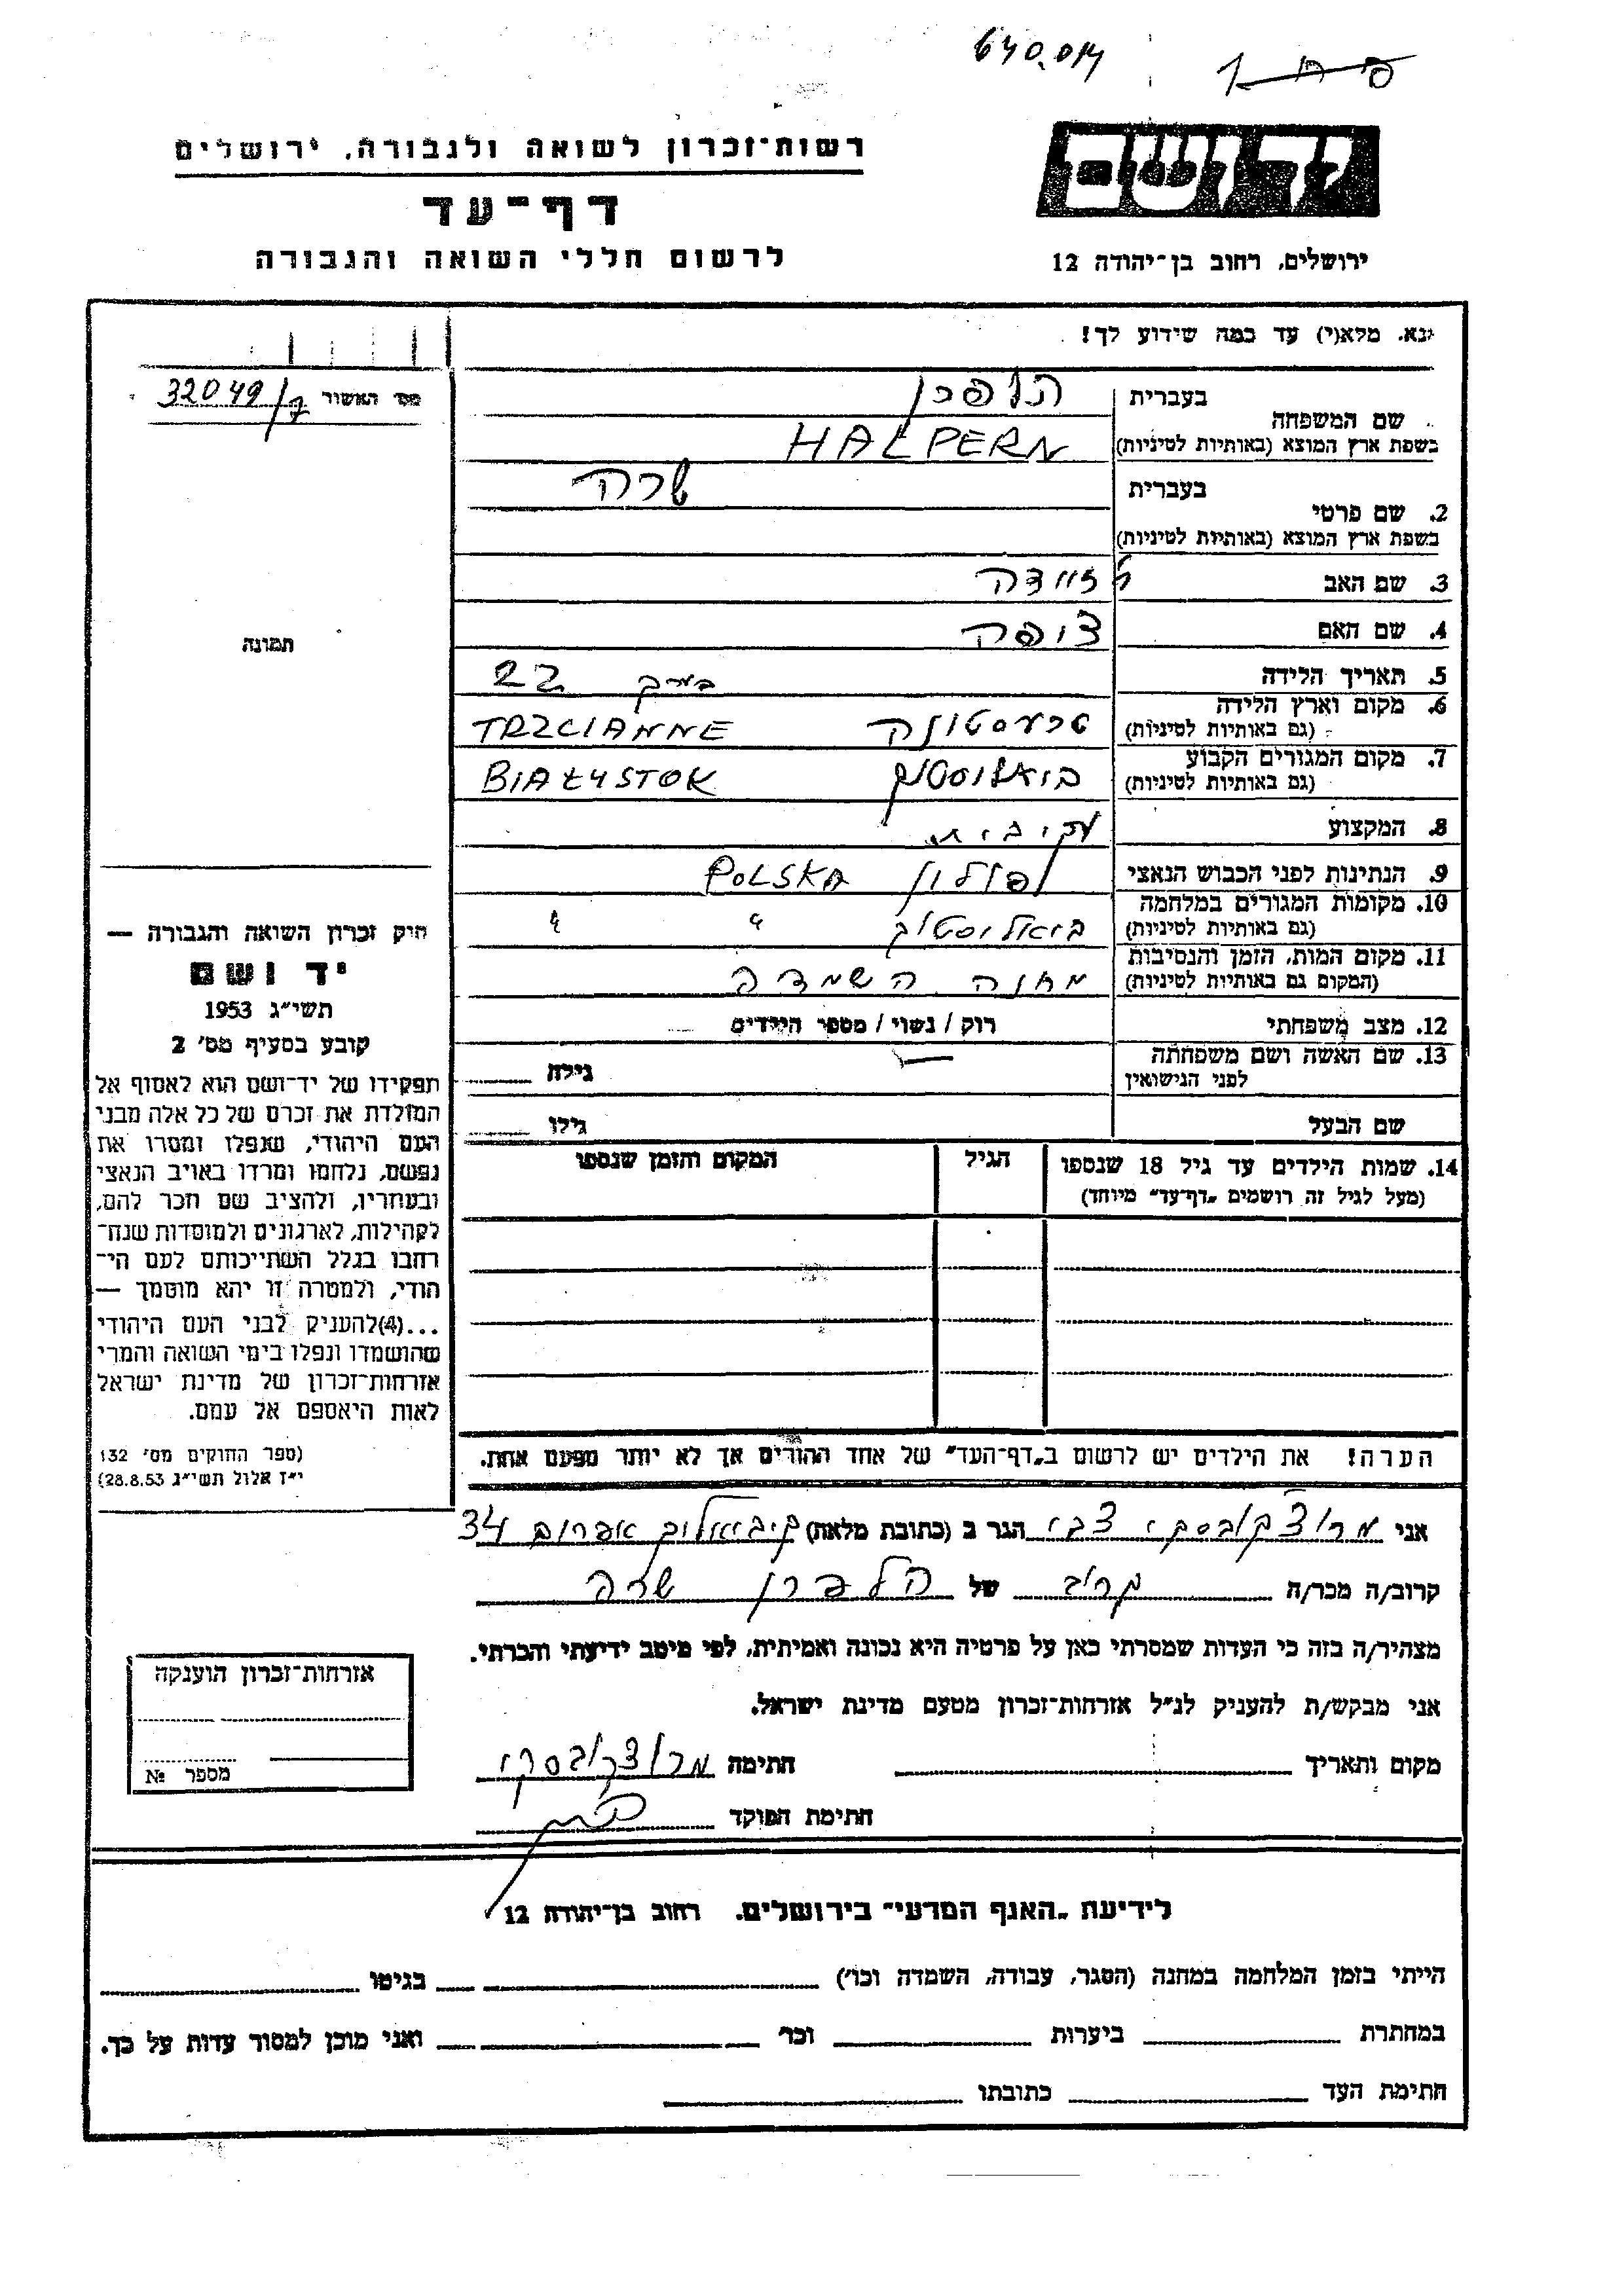 640.014
רשות־זכרון לשואה ולגבורה, ירושלים
דף־עד
לרשום חללי השואה והגבורה
ירושלים, רחוב בן־יהודה 12
נא, מלא(י) עד כמה שידוע לך!
מס׳ האשור 32049/7
שם המשפחה
בעברית הלפרן
בשפת ארץ המוצא (באותיות לטיניות) HALPERN
2. שם פרטי
בעברית שרה
בשפת ארץ המוצא (באותיות לטיניות)
3. שם האב
4. שם האם צופה
5. תאריך הלידה בערך 22
6. מקום וארץ הלידה
(גם באותיות לטיניות) TRZCIANNE
7. מקום המגורים הקבוע
(גם באותיות לטיניות) ביאליסטוק BIAŁYSTOK
8. המקצוע
9. הנתינות לפני הכבוש הנאצי פולין POLSKA
10. מקומות המגורים במלחמה
(גם באותיות לטיניות) ביאליסטוק " "
11. מקום המות, הזמן והנסיבות
(המקום גם באותיות לטיניות) מחנה השמדה
12. מצב משפחתי רוק / נשוי / מספר הילדים
13. שם האשה ושם משפחתה
לפני הנישואין גילה
שם הבעל גילו
14. שמות הילדים עד גיל 18 שנספו
(מעל לגיל זה רושמים „דף־עד" מיוחד)
הגיל
המקום והזמן שנספו
הערה! את הילדים יש לרשום ב„דף־העד" של אחד ההורים אך לא יותר מפעם אחת.
תמונה
חוק זכרון השואה והגבורה —
יד ושם
תשי״ג 1953
קובע בסעיף מס׳ 2
תפקידו של יד־ושם הוא לאסוף אל
המולדת את זכרם של כל אלה מבני
העם היהודי, שנפלו ומסרו את
נפשם, נלחמו ומרדו באויב הנאצי
ובעוזריו, ולהציב שם וזכר להם,
לקהילות, לארגונים ולמוסדות שנח־
רבו בגלל השתייכותם לעם הי־
הודי, ולמטרה זו יהא מוסמך —
...(4)להעניק לבני העם היהודי
שהושמדו ונפלו בימי השואה והמרי
אזרחות־זכרון של מדינת ישראל
לאות היאספם אל עמם.
(ספר החוקים מס׳ 132
י״ז אלול תשי״ג 28.8.53)
אני מרוצקובסקי צבי הגר ב (כתובת מלאה) 34
קרוב/ה מכר/ה קרוב של הלפרן שרה
מצהיר/ה בזה כי העדות שמסרתי כאן על פרטיה היא נכונה ואמיתית, לפי מיטב ידיעתי והכרתי.
אני מבקש/ת להעניק לנ״ל אזרחות־זכרון מטעם מדינת ישראל.
מקום ותאריך חתימה מרוצקובסקי
חתימת הפוקד
אזרחות־זכרון הוענקה
מספר №
לידיעת „האגף המדעי" בירושלים, רחוב בן־יהודה 12
הייתי בזמן המלחמה במחנה (הסגר, עבודה, השמדה וכו׳) בגיטו
במחתרת ביערות וכו׳ ואני מוכן למסור עדות על כך.
חתימת העד כתובתו